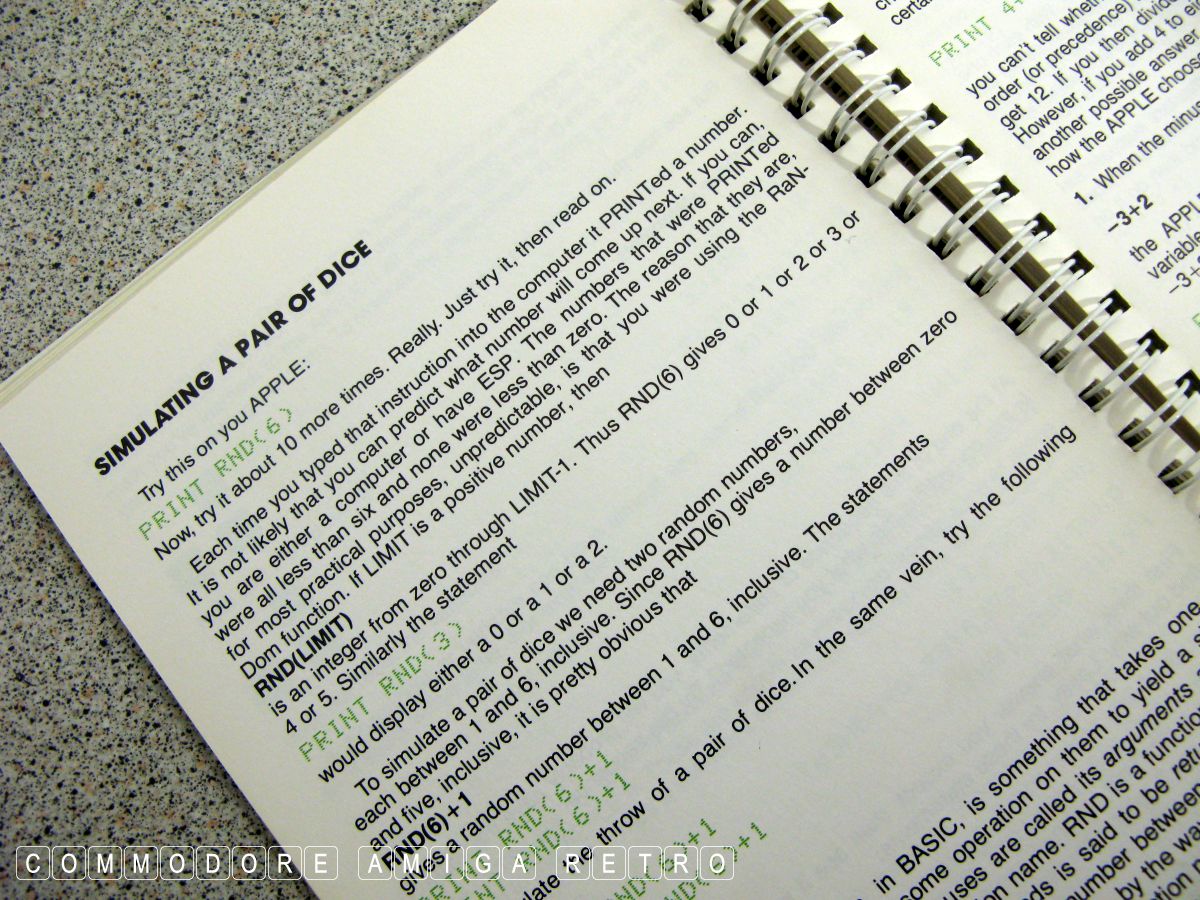 SIMULATING A PAIR OF DICE
Try this on you APPLE:
PRINT RND(6)
Now, try it about 10 more times. Really. Just try it, then read on.
Each time you typed that instruction into the computer it PRINTed a number.
It is not likely that you can predict what number will come up next. If you can,
you are either a computer or have ESP. The numbers that were PRINTed
were all less than six and none were less than zero. The reason that they are,
for most practical purposes, unpredictable, is that you were using the RaN-
Dom function. If LIMIT is a positive number, then
RND(LIMIT)
is an integer from zero through LIMIT-1. Thus RND(6) gives 0 or 1 or 2 or 3 or
4 or 5. Similarly the statement
PRINT RND(3)
would display either a 0 or a 1 or a 2.
To simulate a pair of dice we need two random numbers,
each between 1 and 6, inclusive. Since RND(6) gives a number between zero
and five, inclusive, it is pretty obvious that
RND(6)+1
gives a random number between 1 and 6, inclusive. The statements
PRINT RND(6)+1
PRINT RND(6)+1
the throw of a pair of dice. In the same vein, try the following
+1
+1
in BASIC, is something that takes one
some operation on them to yield a
uses are called its arguments
name. RND is a function
is said to be
number between
by the
PRINT 4+
you can't tell
order (or precedence)
get 12. If you then
However, if you add 4 to
another possible answer
how the APPLE
1. When the
-3+2
the
-3
COMMODORE AMIGA RETRO